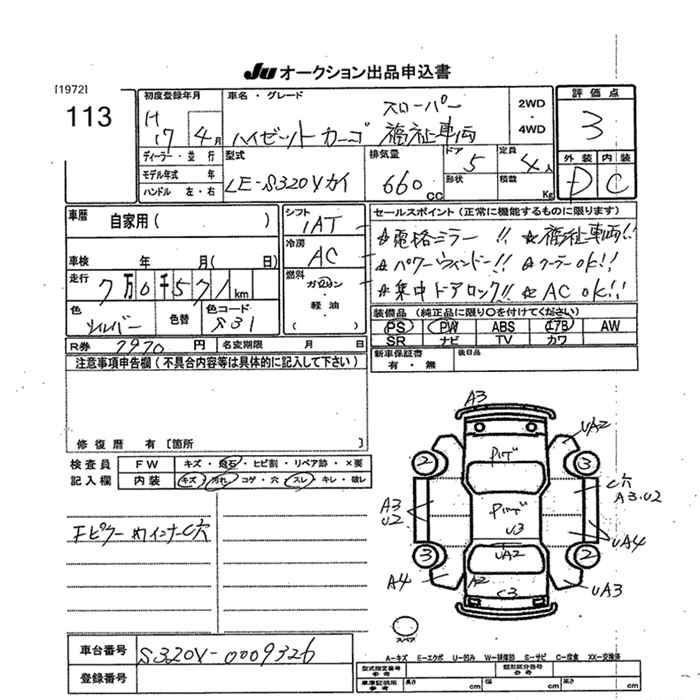 JU オークション出品申込書
[1972]
113
初度登録年月
H 17年 4月
車名・グレード
スローパー
ハイゼット カーゴ 福祉車両
2WD
・
4WD
評価点
3
外装 内装
D C
ディーラー・並行
モデル年式 年
ハンドル 左・右
型式
LE-S320Vカイ
排気量
660 CC
ドア 5
形状
定員 4人
積数 Kg
車歴
自家用( )
車検 年 月( 日)
走行
7万0千571km
色
シルバー
色替
色コード
S31
シフト
IAT
冷房
AC
燃料
ガソリン
・
軽油
( )
セールスポイント(正常に機能するものに限ります)
☆電格ミラー!! ☆福祉車両!!
☆パワーウィンドー!! ☆クーラーOK!!
☆集中ドアロック!! ☆AC OK!!
装備品(純正品に限り○を付けてください)
PS PW ABS エアB AW
SR ナビ TV カワ
R券 7970円
名変期限 月 日
新車保証書
有・無
後日品
注意事項申告欄(不具合内容等は具体的に記入して下さい)
修復歴 有[箇所 ]
検査員
記入欄
FW キズ・飛石・ヒビ割・リペア跡・×要
内装 キズ・汚れ・コゲ・穴・スレ・キレ・破レ
Fピラー インナーC穴
A3
UA2
2
3
C穴
A3.U2
A3
U2
U3
UA4
UA2
3
2
A4
A2
C3
UA3
スペア
A-キズ E-エクボ U-凹み W-補修跡 S-サビ C-腐食 XX-交換済
車台番号
S320V-0009326
登録番号
型式指定番号
参考
類別区分番号
参考
車庫証明用
参考
長さ cm 幅 cm 高さ cm